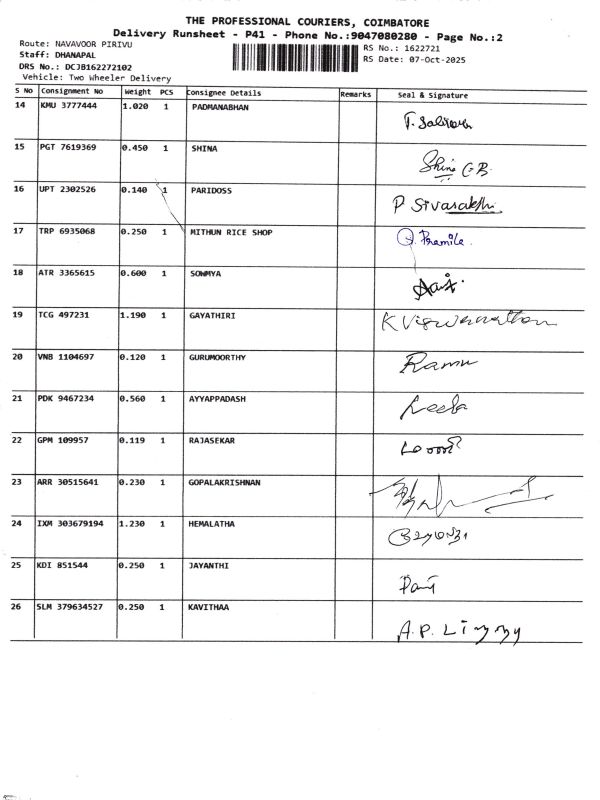 THE PROFESSIONAL COURIERS, COIMBATORE
Delivery Runsheet - P41 - Phone No.:9047080280 - Page No.:2
Route: NAVAVOOR PIRIVU
Staff: DHANAPAL
DRS No.: DCJB162272102
Vehicle: Two Wheeler Delivery
RS No.: 1622721
RS Date: 07-Oct-2025
S No Consignment No Weight PCS Consignee Details Remarks Seal & Signature
14 KMU 3777444 1.020 1 PADMANABHAN
15 PGT 7619369 0.450 1 SHINA Shina G B.
16 UPT 2302526 0.140 1 PARIDOSS P Sivasakthi
17 TRP 6935068 0.250 1 MITHUN RICE SHOP Pramila.
18 ATR 3365615 0.600 1 SOWMYA
19 TCG 497231 1.190 1 GAYATHIRI K Viswanathan
20 VNB 1104697 0.120 1 GURUMOORTHY Ramu
21 PDK 9467234 0.560 1 AYYAPPADASH Leela
22 GPM 109957 0.119 1 RAJASEKAR
23 ARR 30515641 0.230 1 GOPALAKRISHNAN
24 IXM 303679194 1.230 1 HEMALATHA
25 KDI 851544 0.250 1 JAYANTHI
26 SLM 379634527 0.250 1 KAVITHAA A.P.